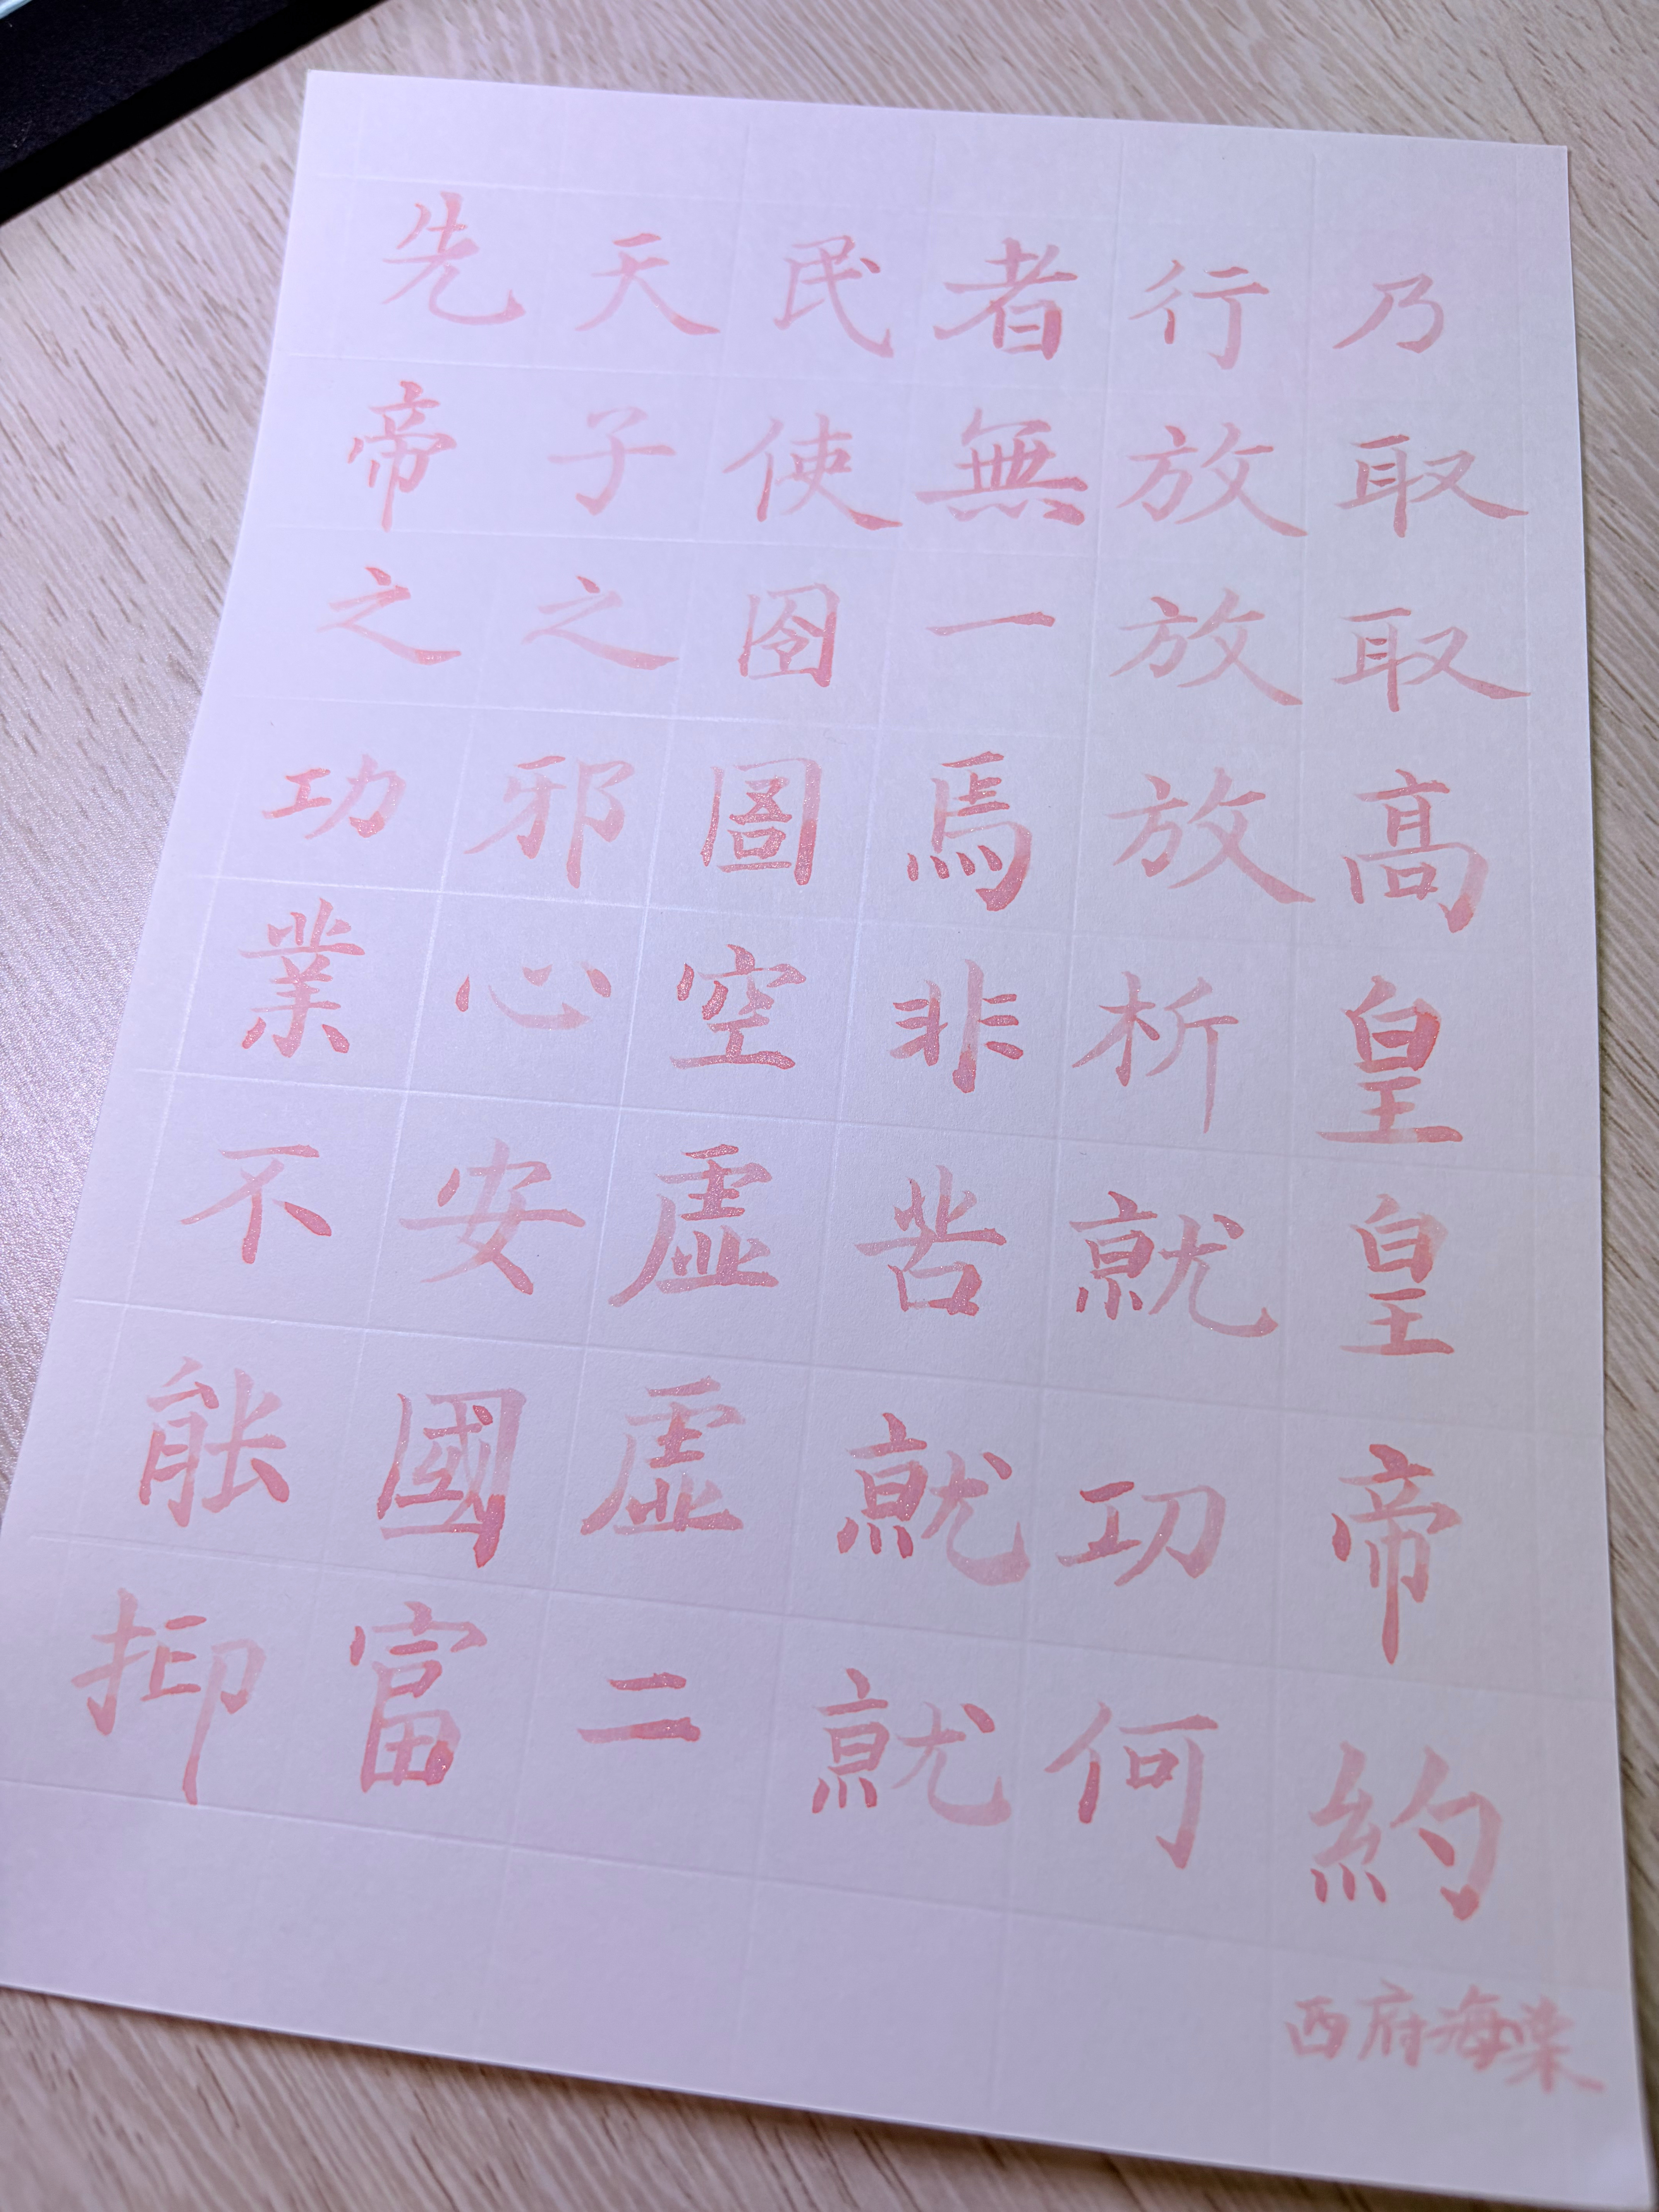 先帝之功業不能抑
天子之邪心安國富
民使囹圄空虛虛二
者無一焉非苦就就
行放放放析就功何
乃取取高皇皇帝約
西府海棠